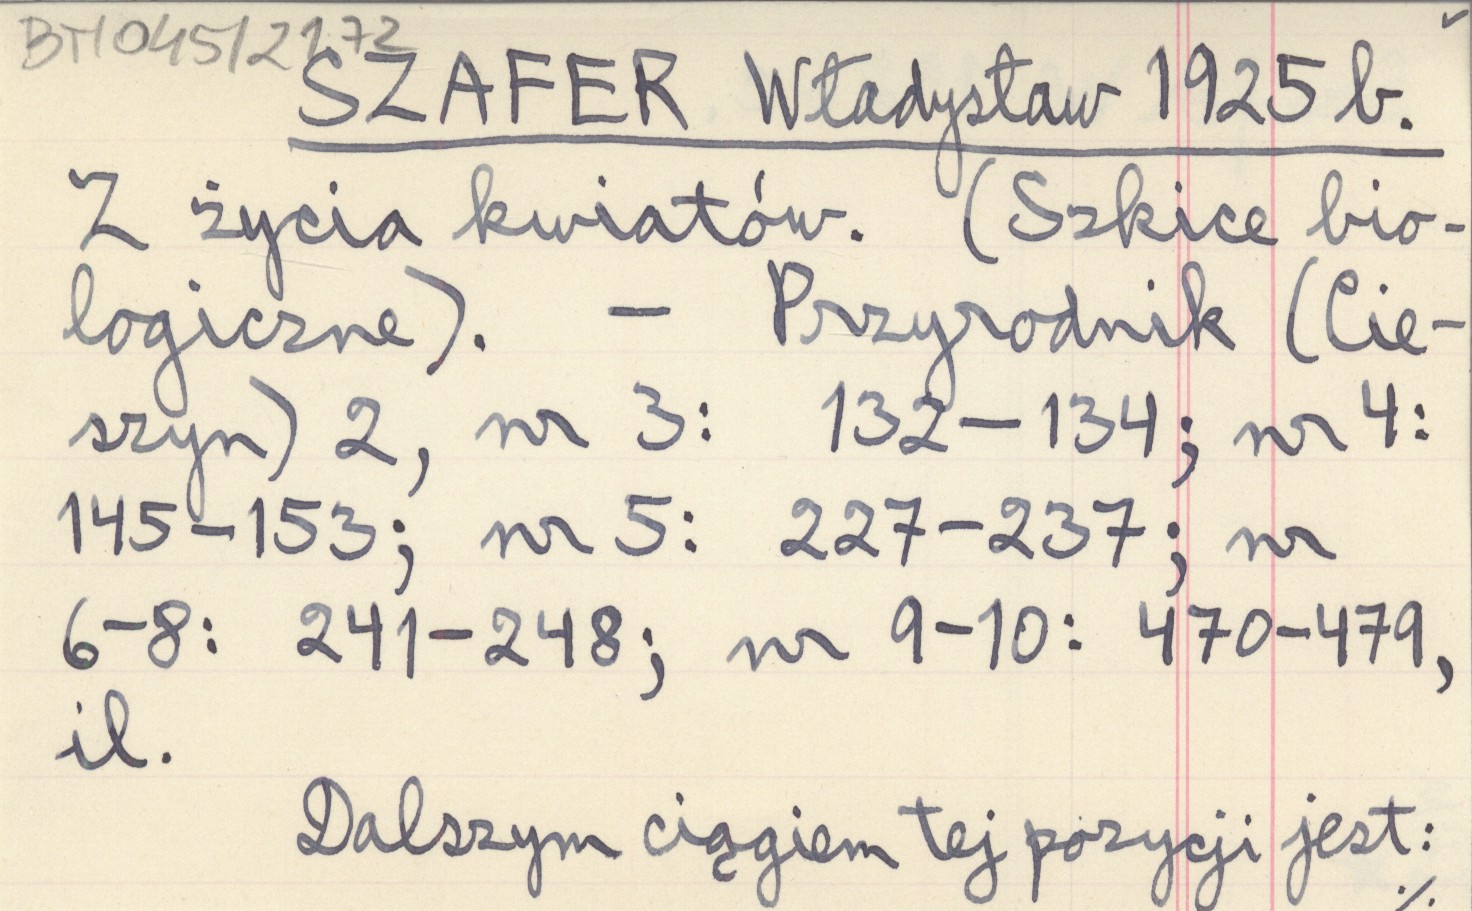 BM045/2172
SZAFER Władysław 1925 b.
Z życia kwiatów. (Szkice bio-
logiczne). — Przyrodnik (Cie-
szyn) 2, nr 3: 132-134; nr 4:
145-153; nr 5: 227-237; nr
6-8: 241-248; nr 9-10: 470-479,
il.
Dalszym ciągiem tej pozycji jest:
./.